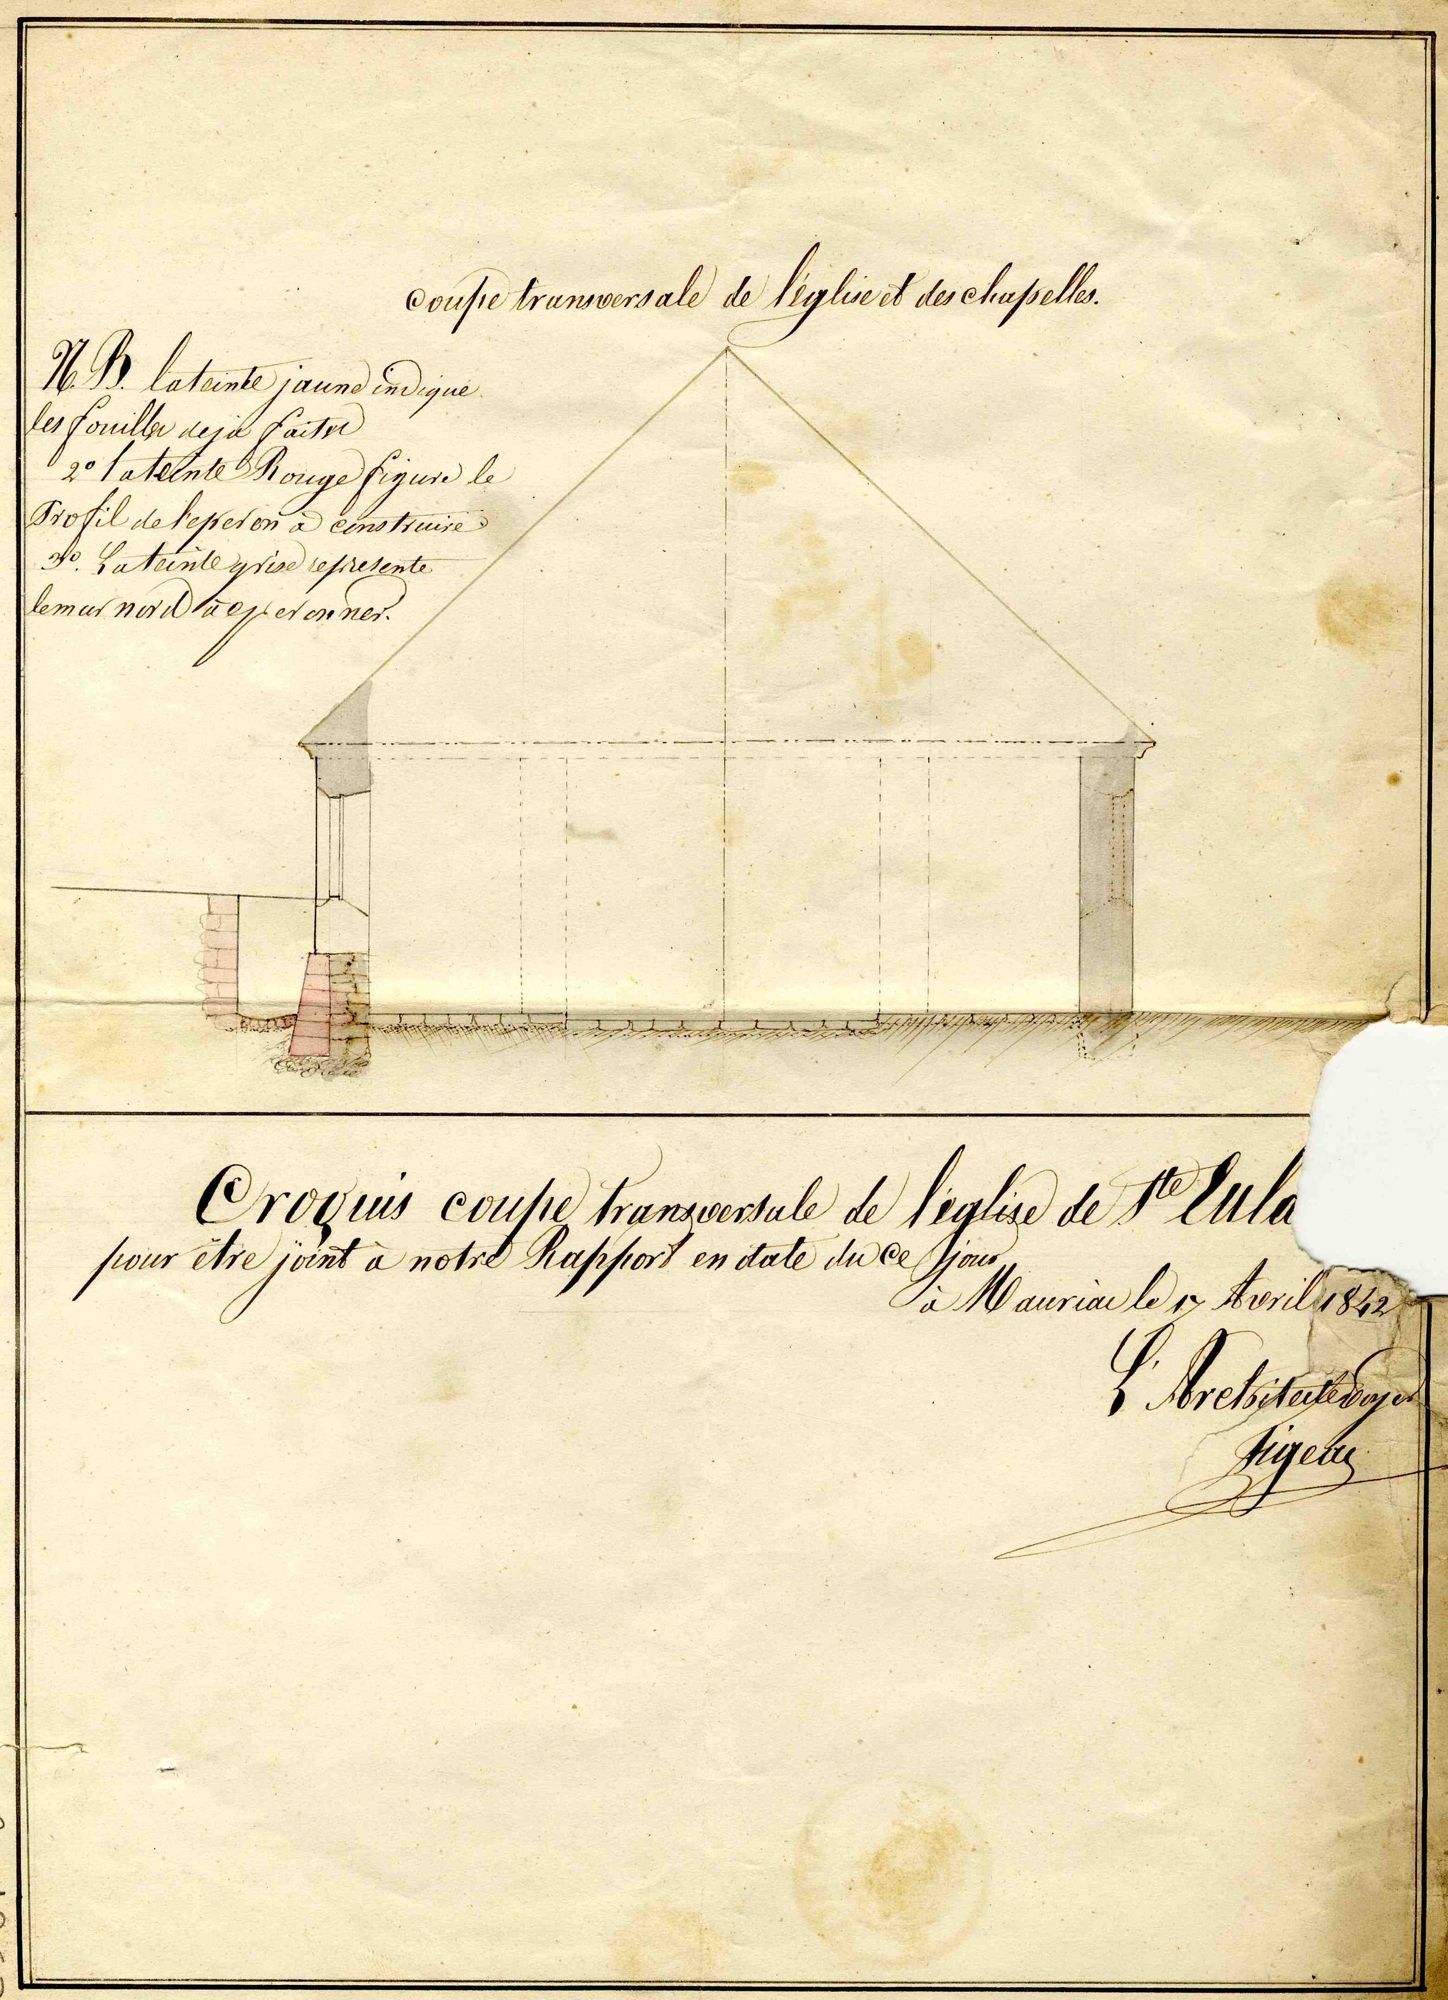 coupe transversale de l'église et des chapelles.
N.B. la teinte jaune indique
les fouilles deja faites
2° la teinte Rouge figure le
Profil de l'eperon à construire
3°. La teinte grise represente
le mur nord à eperonner.
Croquis coupe transversale de l'église de Ste Eula
pour être joint à notre Rapport en date du ce jour
à Mauriac le 17 Avril 1842
L'Architecte voyer